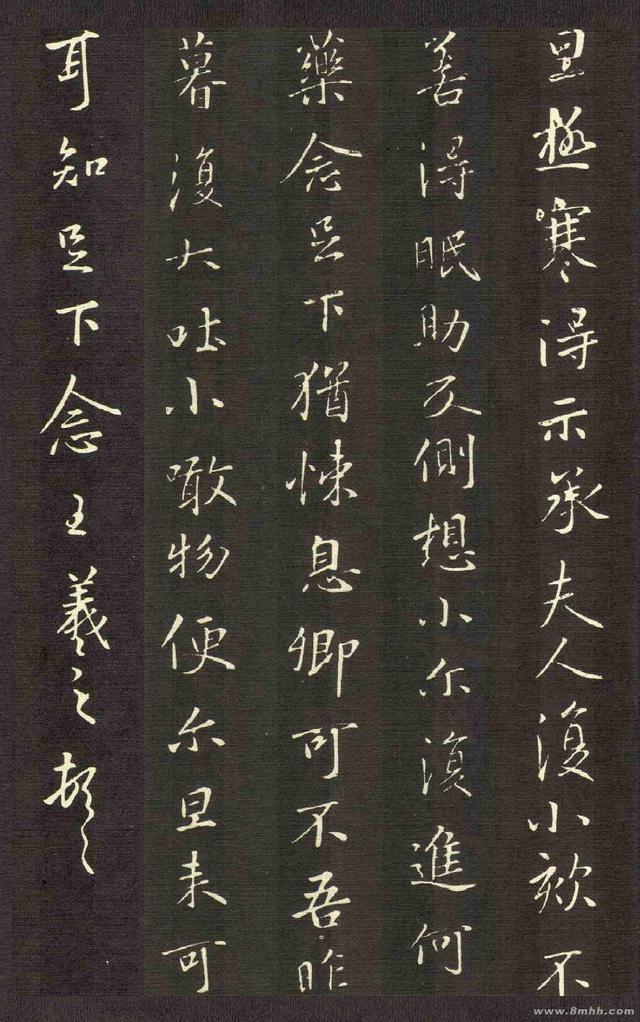 旦極寒得示承夫人復小欬不
善得眠助反側想小尔復進何
藥念足下猶悚息卿可不吾昨
暮復大吐小噉物便尔旦来可
耳知足下念王羲之頓首
www.8mhh.com